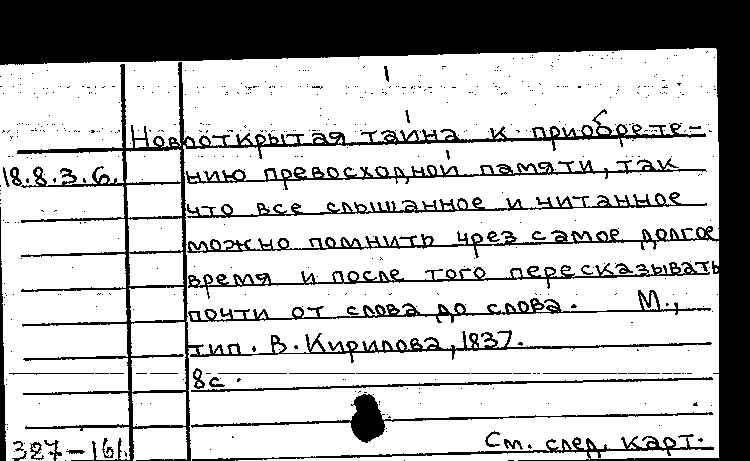 Новооткрытая тайна к приобрете-
18.8.3.6. нию превосходной памяти, так
что все слышанное и читанное
можно помнить чрез самое долгое
время и после того пересказывать
почти от слова до слова. М.,
тип. В. Кирилова, 1837.
8с.
См. след. карт.